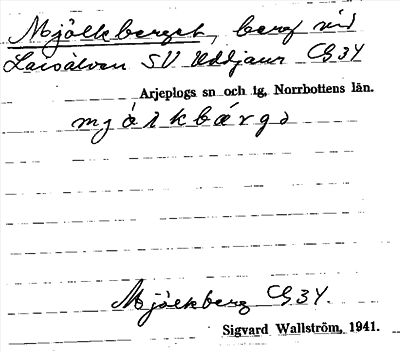 Mjölkberget, berg vid
Laisälven SV Uddjaur G34
Arjeplogs sn och tg, Norrbottens län.
mjölkbärgə
Mjölkberg G34.
Sigvard Wallström, 1941.